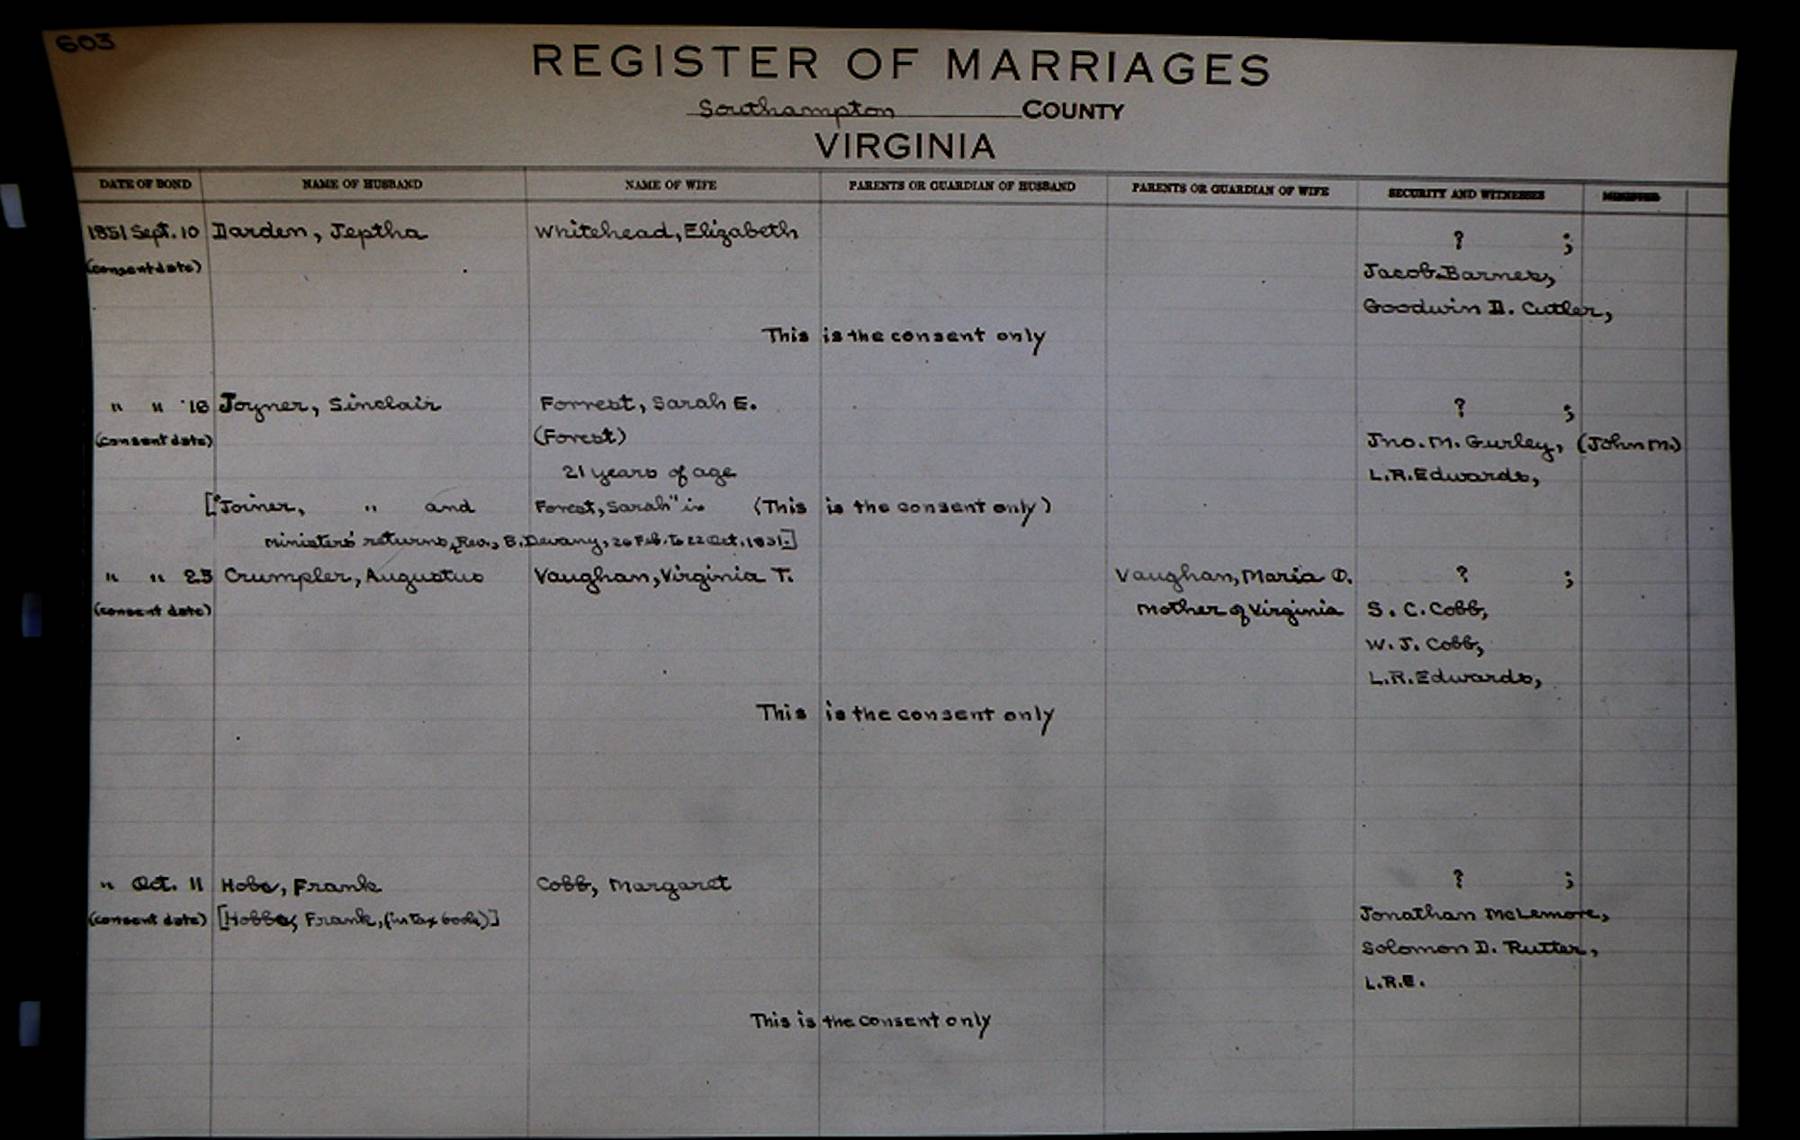 603
REGISTER OF MARRIAGES
Southampton COUNTY
VIRGINIA
DATE OF BOND NAME OF HUSBAND NAME OF WIFE PARENTS OR GUARDIAN OF HUSBAND PARENTS OR GUARDIAN OF WIFE SECURITY AND WITNESSES MINISTER
1851 Sept. 10 Darden, Jeptha Whitehead, Elizabeth ? ;
(consent date) Jacob Barnes,
Goodwin D. Cutler,
This is the consent only
" " 16 Joyner, Sinclair Forrest, Sarah E. ? ;
(consent date) (Forest) Jno. M. Gurley, (John M.)
21 years of age L.R. Edwards,
["Joiner, " and Forest, Sarah" in (This is the consent only)
Ministers' returns, Rev., B. Devany, 26 Feb. to 22 Oct. 1851.]
" " 23 Crumpler, Augustus Vaughan, Virginia T. Vaughan, Maria O. ? ;
(consent date) Mother of Virginia S. C. Cobb,
W. J. Cobb,
L.R. Edwards,
This is the consent only
" Oct. 11 Hobs, Frank Cobb, Margaret ? ;
(consent date) [Hobbs, Frank, (in tax book)] Jonathan McLemore,
Solomon D. Rutter,
L.R.E.
This is the consent only